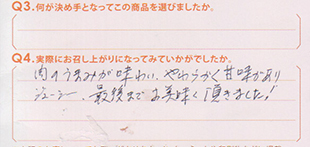 Q3.何が決め手となってこの商品を選びましたか。
Q4.実際にお召し上がりになってみていかがでしたか。
肉のうまみが味わい、やわらかく甘味があり
ジューシー、最後までお美味く頂きました!